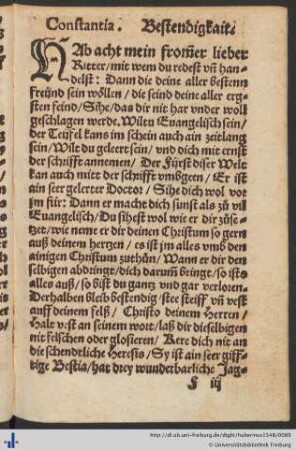 Constantia. Bestendigkait.
HAb acht mein from̃er lieber
Ritter/mit wem du redest vñ han-
delst: Dann die deine aller bestenn
freünd sein wöllen/ die seind deine aller erg-
sten feind/Sihe/das dir nit har vnder woll
geschlagen werde. Wiltu Euangelisch sein/
der Teüfel kans im schein auch ain zeitlang
sein/Wilt du geleert sein/ vnd dich mit ernst
der schrifft annemen/ Der Fürst diser Welt
kan auch mitt der schrifft vmbgeen/ Er ist
ain seer gelerter Doctor/ Sihe dich wol vor
jm für: Dann er macht dich sunst als zů vil
Euangelisch/Du sihest wol wie er dir züse-
tzt/wie neme er dir deinen Christum so gern
auß deinem hertzen/ es ist jm alles vmb den
ainigen Christum zuthůn/Wann er dir den
selbigen abdringt/dich darum̃ bringt/so ists
alles auß/so bist du gantz vnd gar verloren.
Derhalben bleib bestendig/stee steiff vñ vest
auff deinem felß/ Christo deinem Herren/
Halt vest an seinem wort/laß dir dieselbigen
nit felschen oder glosieren/ Kere dich nit an
die schendtliche Heresis/Sy ist ain seer giff-
tige Bestia/hat drey wunderbarliche Jag-
F iij
http://dl.ub.uni-freiburg.de/diglit/hubermus1546/0089
© Universitätsbibliothek Freiburg